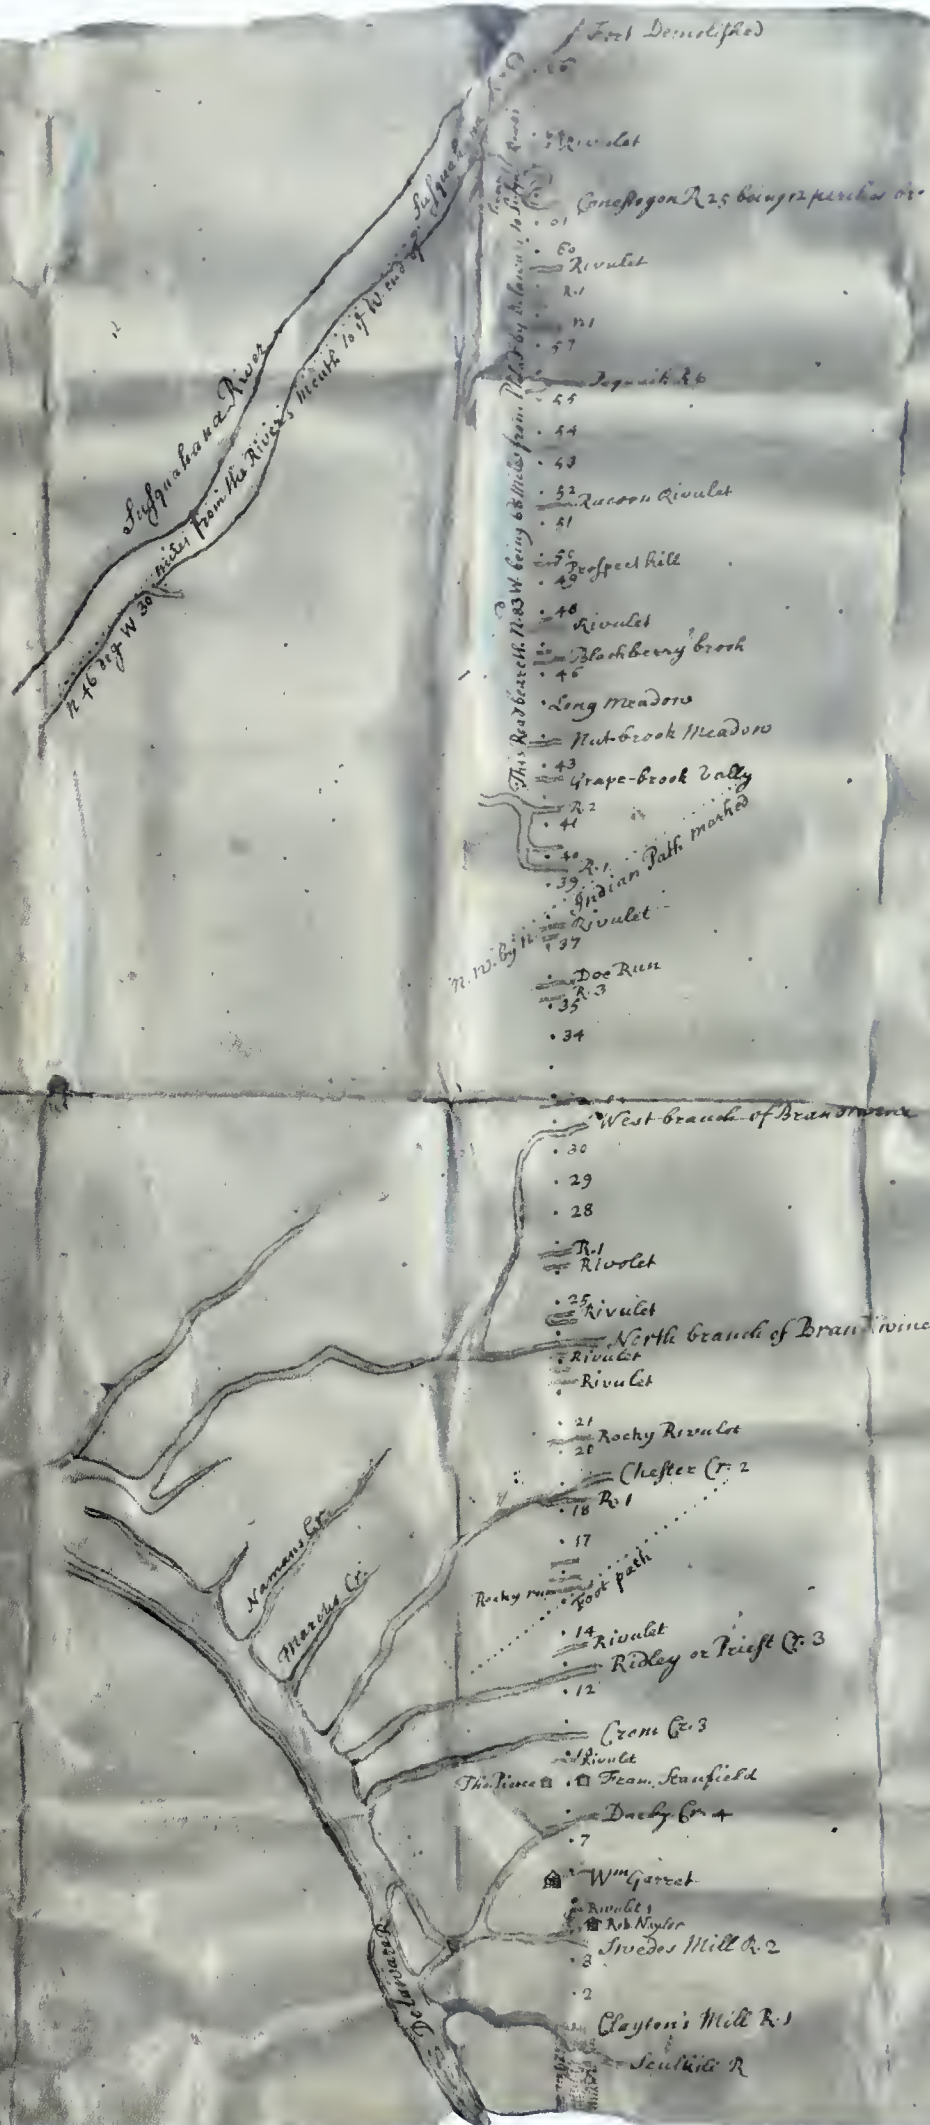 Fort Demolished
Rivulet
Conestogon R 25 being 12 perches or
60
Rivulet
R.1
57
R 6
55
54
53
52
Racoon Rivulet
51
50
Prospect hill
49
48
Rivulet
Blackberry brook
46
Long Meadow
Nut-brook Meadow
43
Grape-brook Vally
R.2
41
40
R.1
39
Indian Path marked
N.W. by N.
Rivulet
37
Doe Run
R.3
35
34
West branch of Brandwine
30
29
28
R.1
Rivolet
25
Rivulet
North branch of Brandwine
Rivulet
Rivulet
21
Rocky Rivulet
20
Chester Cr. 2
R.1
18
17
Rocky run
Foot path
14
Rivulet
Ridley or Priest Cr. 3
12
Crom Cr. 3
Rivulet
Tho. Pierce
Fran. Stanfield
Darby Cr. 4
7
Wm Garret
Rivulet 1
Rob. Naylor
Swedes Mill R. 2
3
2
Clayton's Mill R.1
Sculkill R
This Road beareth N.83 W being 68 Miles from Philad by Delaware to
Susquahana River
N 46 deg W 30 miles from the River's Mouth to ye W. end of
Susquahana
Namans Cr.
Marcus Cr.
Delaware R